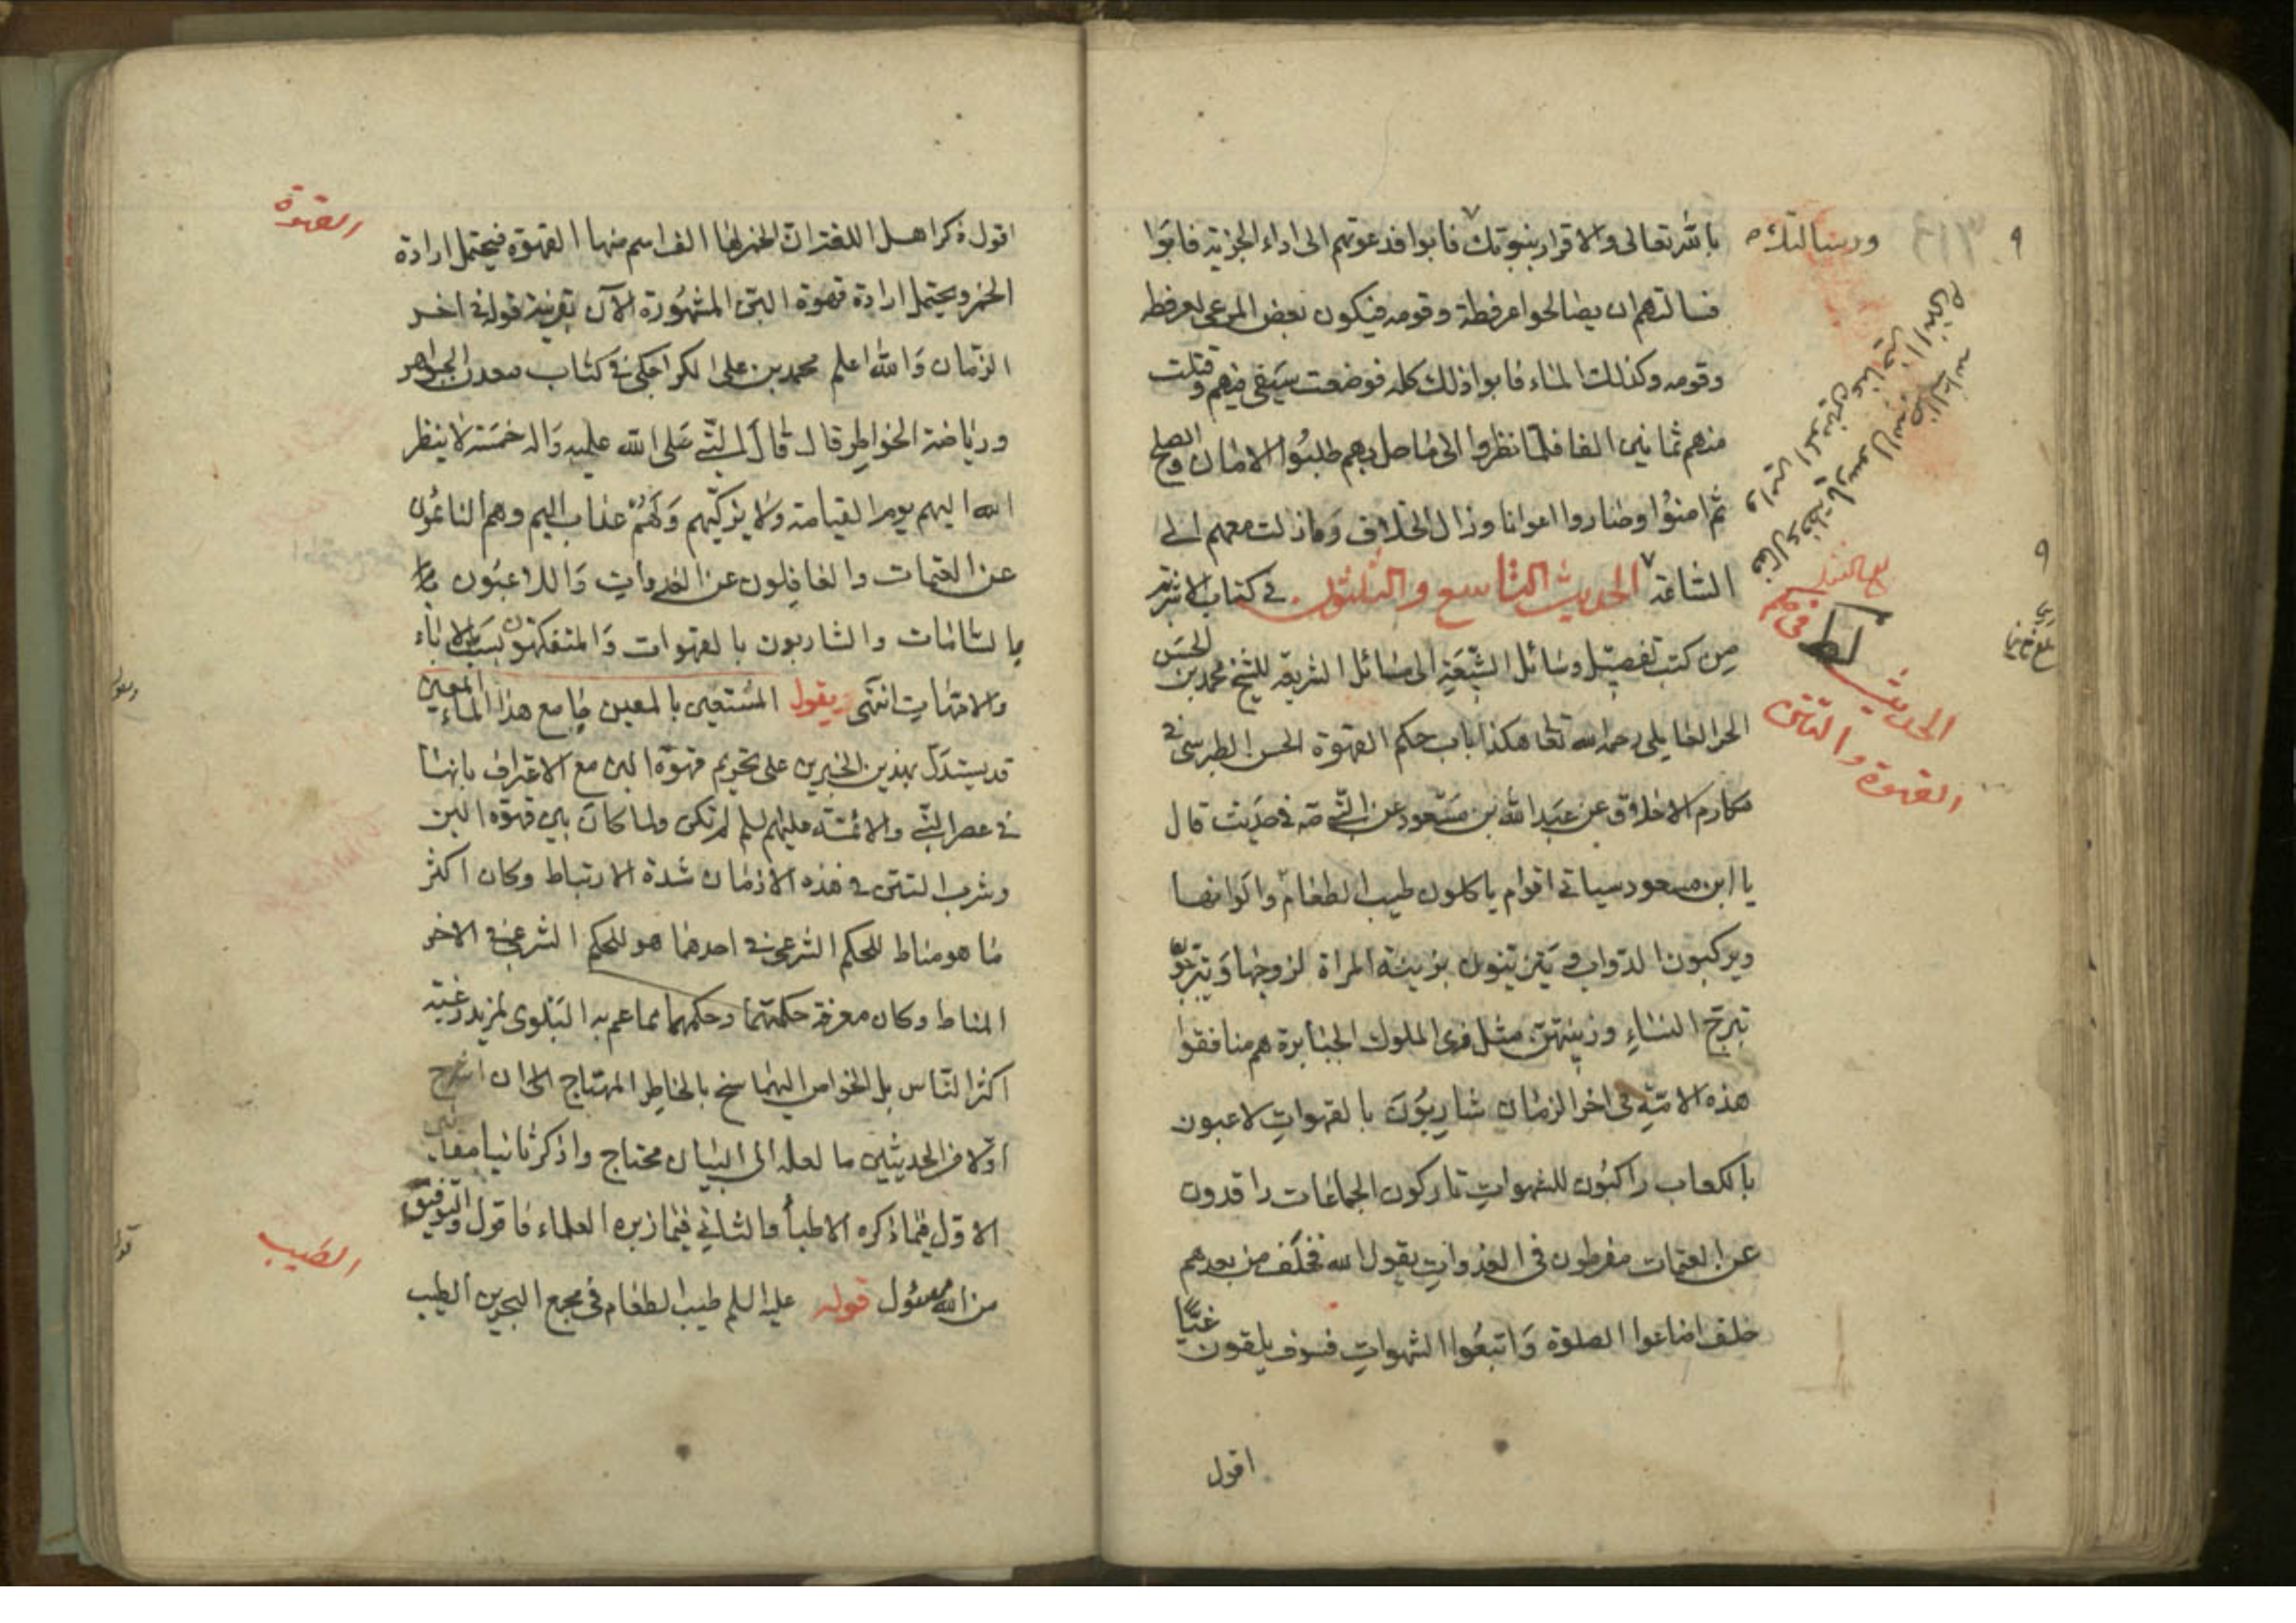 بالله تعالى والاقرار بنبوتك فابوا فدعوتهم الى اداء الجزية فابوا
ورسالتك
فسالتهم ان يصالحوا عرفطة وقومه فيكون بعض المرعى لعرفطة
وقومه وكذلك الماء فابوا ذلك كله فوضعت سيفي فيهم وقتلت
منهم ثمانين الفا فلما نظروا الى ما حل بهم طلبوا الامان والصلح
ثم امنوا وصاروا اخوانا وزال الخلاف وما زلت معهم الى
الساعة الحديث التاسع والثلثون في كتاب الاشربة
لط
الحديث
القهوة والتتن
من كتب تفصيل وسائل الشيعة الى مسائل الشريعة للشيخ محمد بن الحسن
الحر العاملي رحمه الله تعا هكذا باب حكم القهوة الحسن الطبرسي في
مكارم الاخلاق عن عبد الله بن مسعود عن النبي صه في حديث قال
يا ابن مسعود سياتي اقوام ياكلون طيب الطعام والوانها
ويركبون الدواب ويتزينون بزينة المراة لزوجها ويتبرجون
تبرج النساء وزينتهن مثل زي الملوك الجبابرة هم منافقوا
هذه الامة في اخر الزمان شاربون بالقهوات لاعبون
بالكعاب راكبون للشهوات تاركون الجماعات راقدون
عن العتمات مفرطون في الغدوات يقول الله فخلف من بعدهم
خلف اضاعوا الصلوة واتبعوا الشهوات فسوف يلقون غيا
اقول
القهوة
اقول ذكر اهل اللغة ان الخمر لها الف اسم منها القهوة فيحتمل ارادة
الخمر ويحتمل ارادة قهوة البن المشهورة الآن بقرينة قوله في اخر
الزمان والله اعلم محمد بن على الكراجكي في كتاب معدن الجواهر
ورياضة الخواطر قال قال النبي صلى الله عليه واله خمسة لا ينظر
الله اليهم يوم القيامة ولا يزكيهم ولهم عذاب اليم وهم النائمون
عن العتمات والغافلون عن الغدوات واللاعبون
بالشامات والشاربون بالقهوات والمتفكهون بسب الاباء
والامهات انتهى يقول المستعين بالمعين جامع هذا الماء المعين
قد يستدل بهذين الخبرين على تحريم قهوة البن مع الاعتراف بانها
في عصر النبي والائمة عليهم السلم لم تكن ولما كان بين قهوة البن
وشرب التتن في هذه الازمان شدة الارتباط وكان اكثر
ما هو مناط للحكم الشرعي في احدهما هو للحكم الشرعي في الاخر
المناط وكان معرفة حكمتهما وحكمهما مما عم به البلوى لمزيد رغبة
اكثر الناس بل الخواص اليهما سنح بالخاطر المهتاج الى ان اشرح
اولا من الحديثين ما لعله الى البيان محتاج واذكر ثانيا
الاول فيما ذكره الاطبا والثاني فيما زبره العلماء فاقول والتوفيق
من الله مسئول قوله عليه السلم طيب الطعام في مجمع البحرين الطيب
الطيب